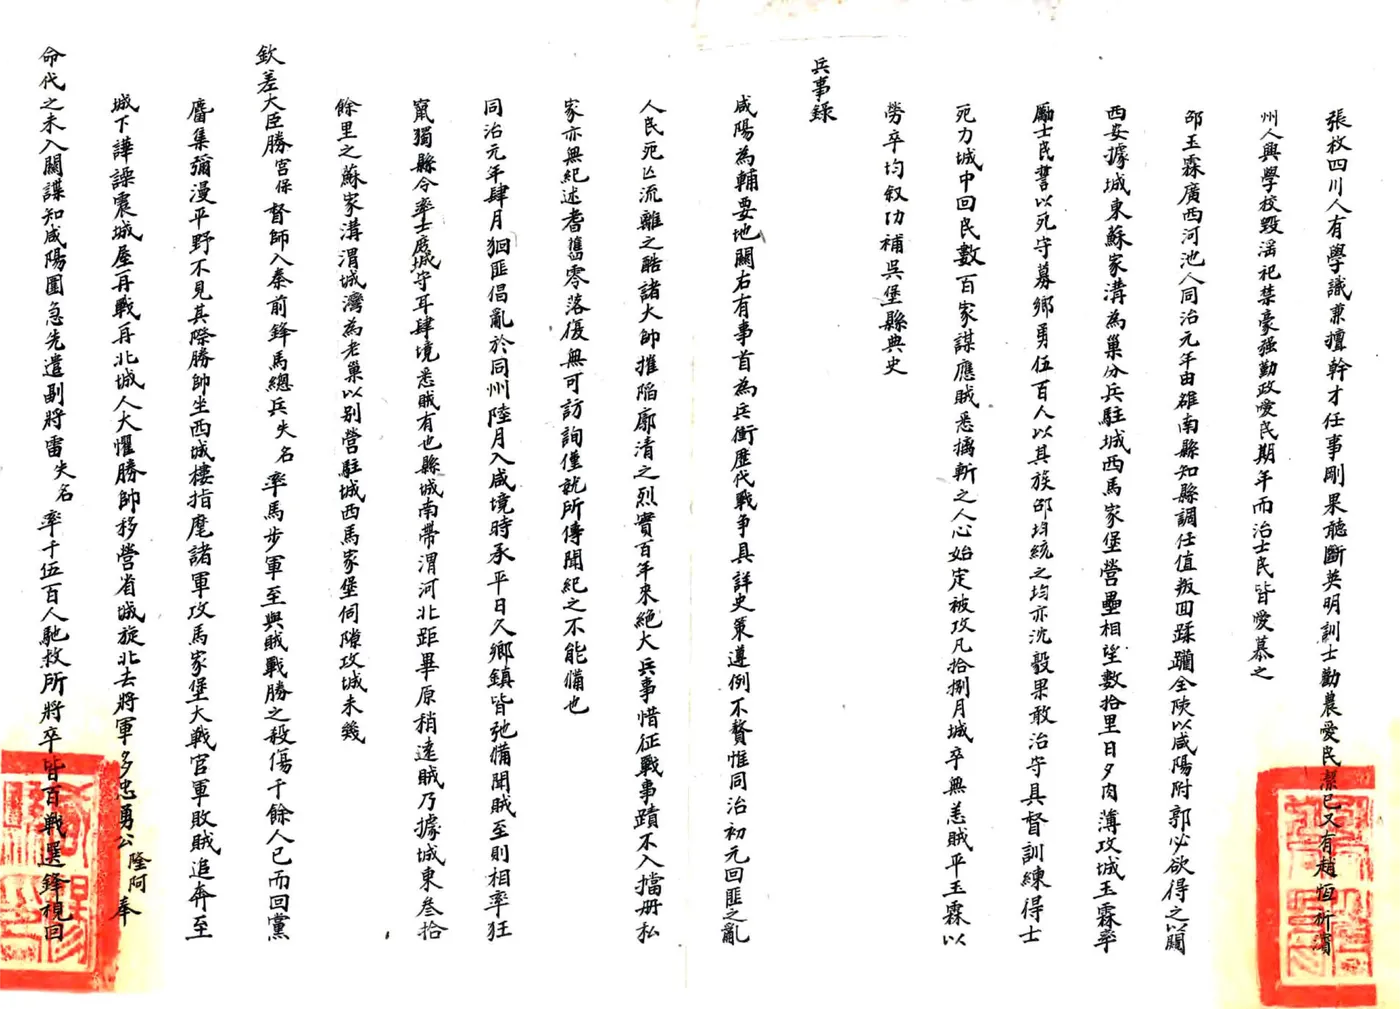 張枚四川人有學識兼擅幹才任事剛果聽斷英明訓士勤農愛民潔已又有趙恒祈瀆
州人興學校毀滛祀禁豪强勤政愛民期年而治士民皆愛慕之
邵玉霖廣西河池人同治元年由雒南縣知縣調任值叛回蹂躪全陜以咸陽附郭必欲得之以闚
西安據城東蘇家溝為巢分兵駐城西馬家堡營壘相望數拾里日夕肉薄攻城玉霖率
勵士民誓以死守募鄉勇伍百人以其族邵均統之均亦沈毅果敢治守具督訓練得士
死力城中回民數百家謀應賊悉擒斬之人心始定被攻凡拾捌月城卒無恙賊平玉霖以
勞卒均叙功補吳堡縣典史
兵事録
咸陽為輔要地關右有事首為兵衝歷代戰争具詳史策遵例不贅惟同治初元回匪之亂
人民死亡流離之酷諸大帥摧陷廓清之烈實百年來絕大兵事惜征戰事蹟不入擋册私
家亦無紀述耆舊零落復無可訪詢僅就所傳聞紀之不能備也
同治元年肆月狪匪倡亂於同州陸月入咸境時承平日久鄉鎮皆弛備聞賊至則相率狂
竄獨縣令率士庶城守耳肆境悉賊有也縣城南帶渭河北距畢原稍遠賊乃據城東叁拾
餘里之蘇家溝渭城灣為老巢以別營駐城西馬家堡伺隙攻城未幾
欽差大臣勝宮保督師入秦前鋒馬總兵失名率馬步軍至與賊戰勝之殺傷千餘人已而回黨
麕集彌漫平野不見其際勝帥坐西城樓指麾諸軍攻馬家堡大戰官軍敗賊追奔至
城下譁譟震城屋再戰再北城人大懼勝帥移營省城旋北去將軍多忠勇公隆阿奉
命代之未入關諜知咸陽圍急先遣副將雷失名率千伍百人馳救所將卒皆百戰選鋒視回